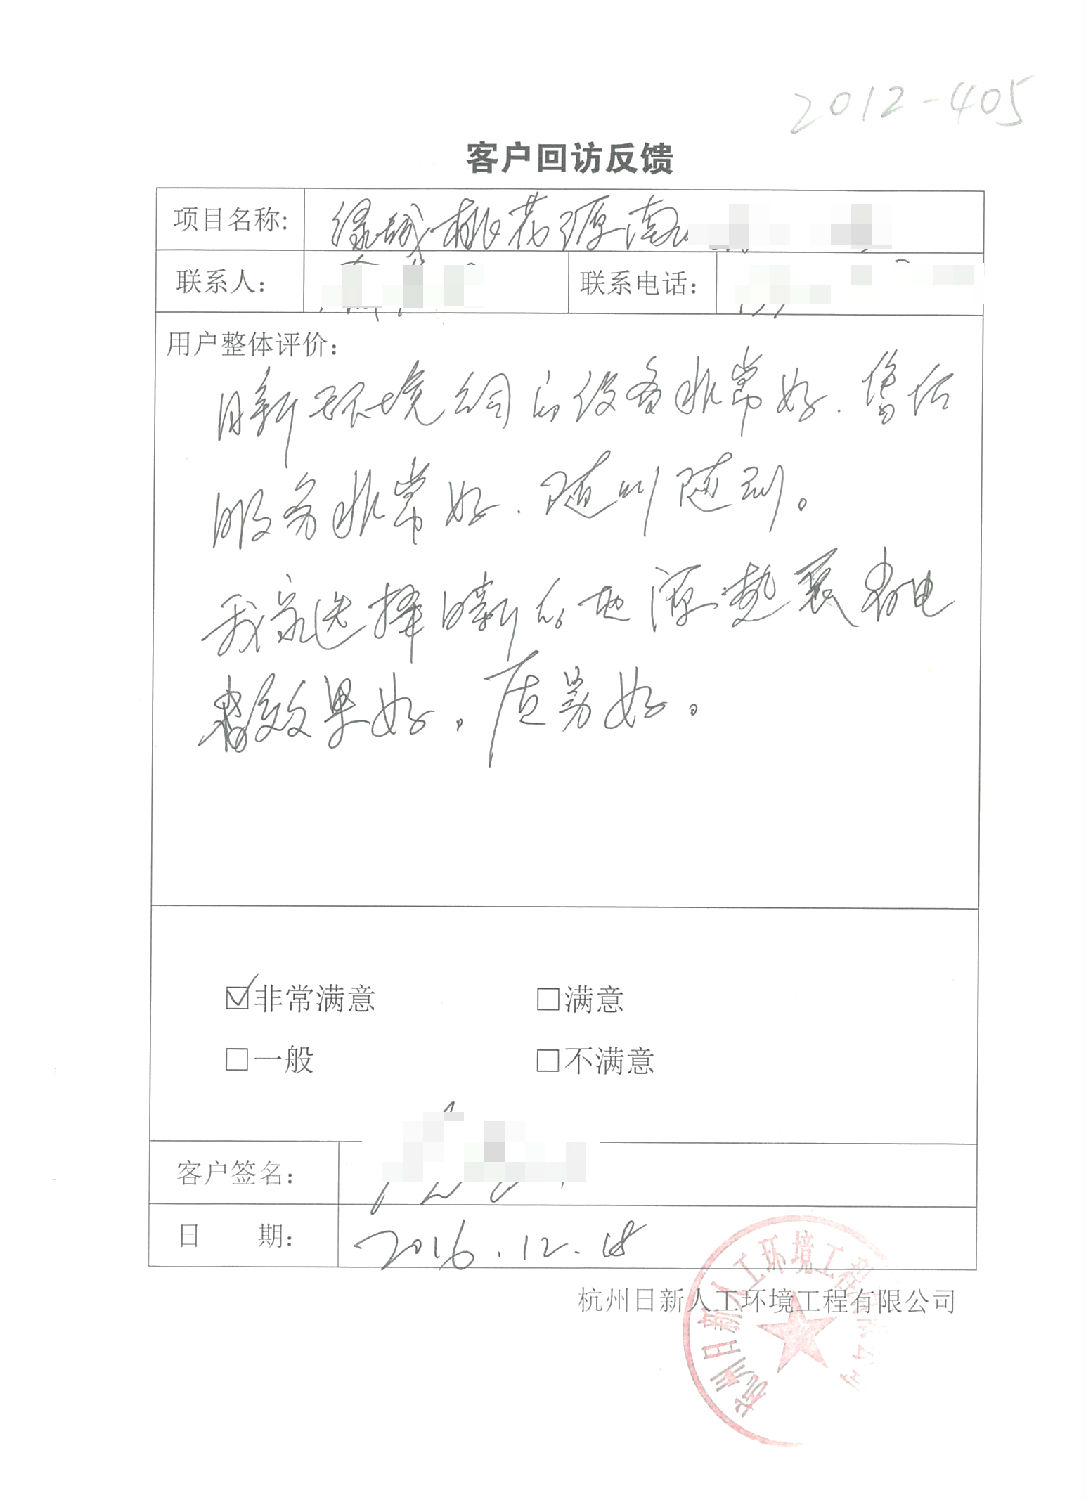 2012-405
客户回访反馈
项目名称: 绿城桃花源南
联系人: 联系电话:
用户整体评价:
日新环境公司的设备非常好.售后
服务非常好.随叫随到。
我家选择日新的地源热泵省电
效果好,质量好。
☑非常满意 □满意
□一般 □不满意
客户签名:
日 期: 2016.12.18
杭州日新人工环境工程有限公司
杭州日新人工环境工程有限公司